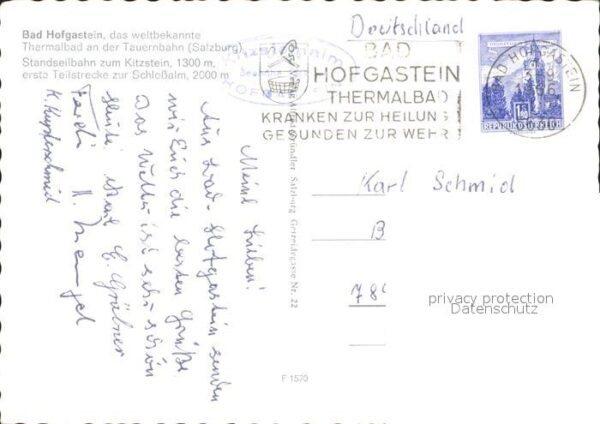 Bad Hofgastein, das weltbekannte
Thermalbad an der Tauernbahn (Salzburg)
Standseilbahn zum Kitzstein, 1300 m,
erste Teilstrecke zur Schloßalm, 2000 m
Deutschland
BAD
HOFGASTEIN
THERMALBAD
KRANKEN ZUR HEILUNG
GESUNDEN ZUR WEHR
BAD HOFGASTEIN
REPUBLIK ÖSTERREICH
Meine Lieben!
Aus Bad-Hofgastein senden
wir Euch die besten Grüße.
Das Wetter ist sehr schön
K. Kupferschmid
Salzburg Getreidegasse Nr. 22
Karl Schmid
B
78
F 1570
privacy protection
Datenschutz